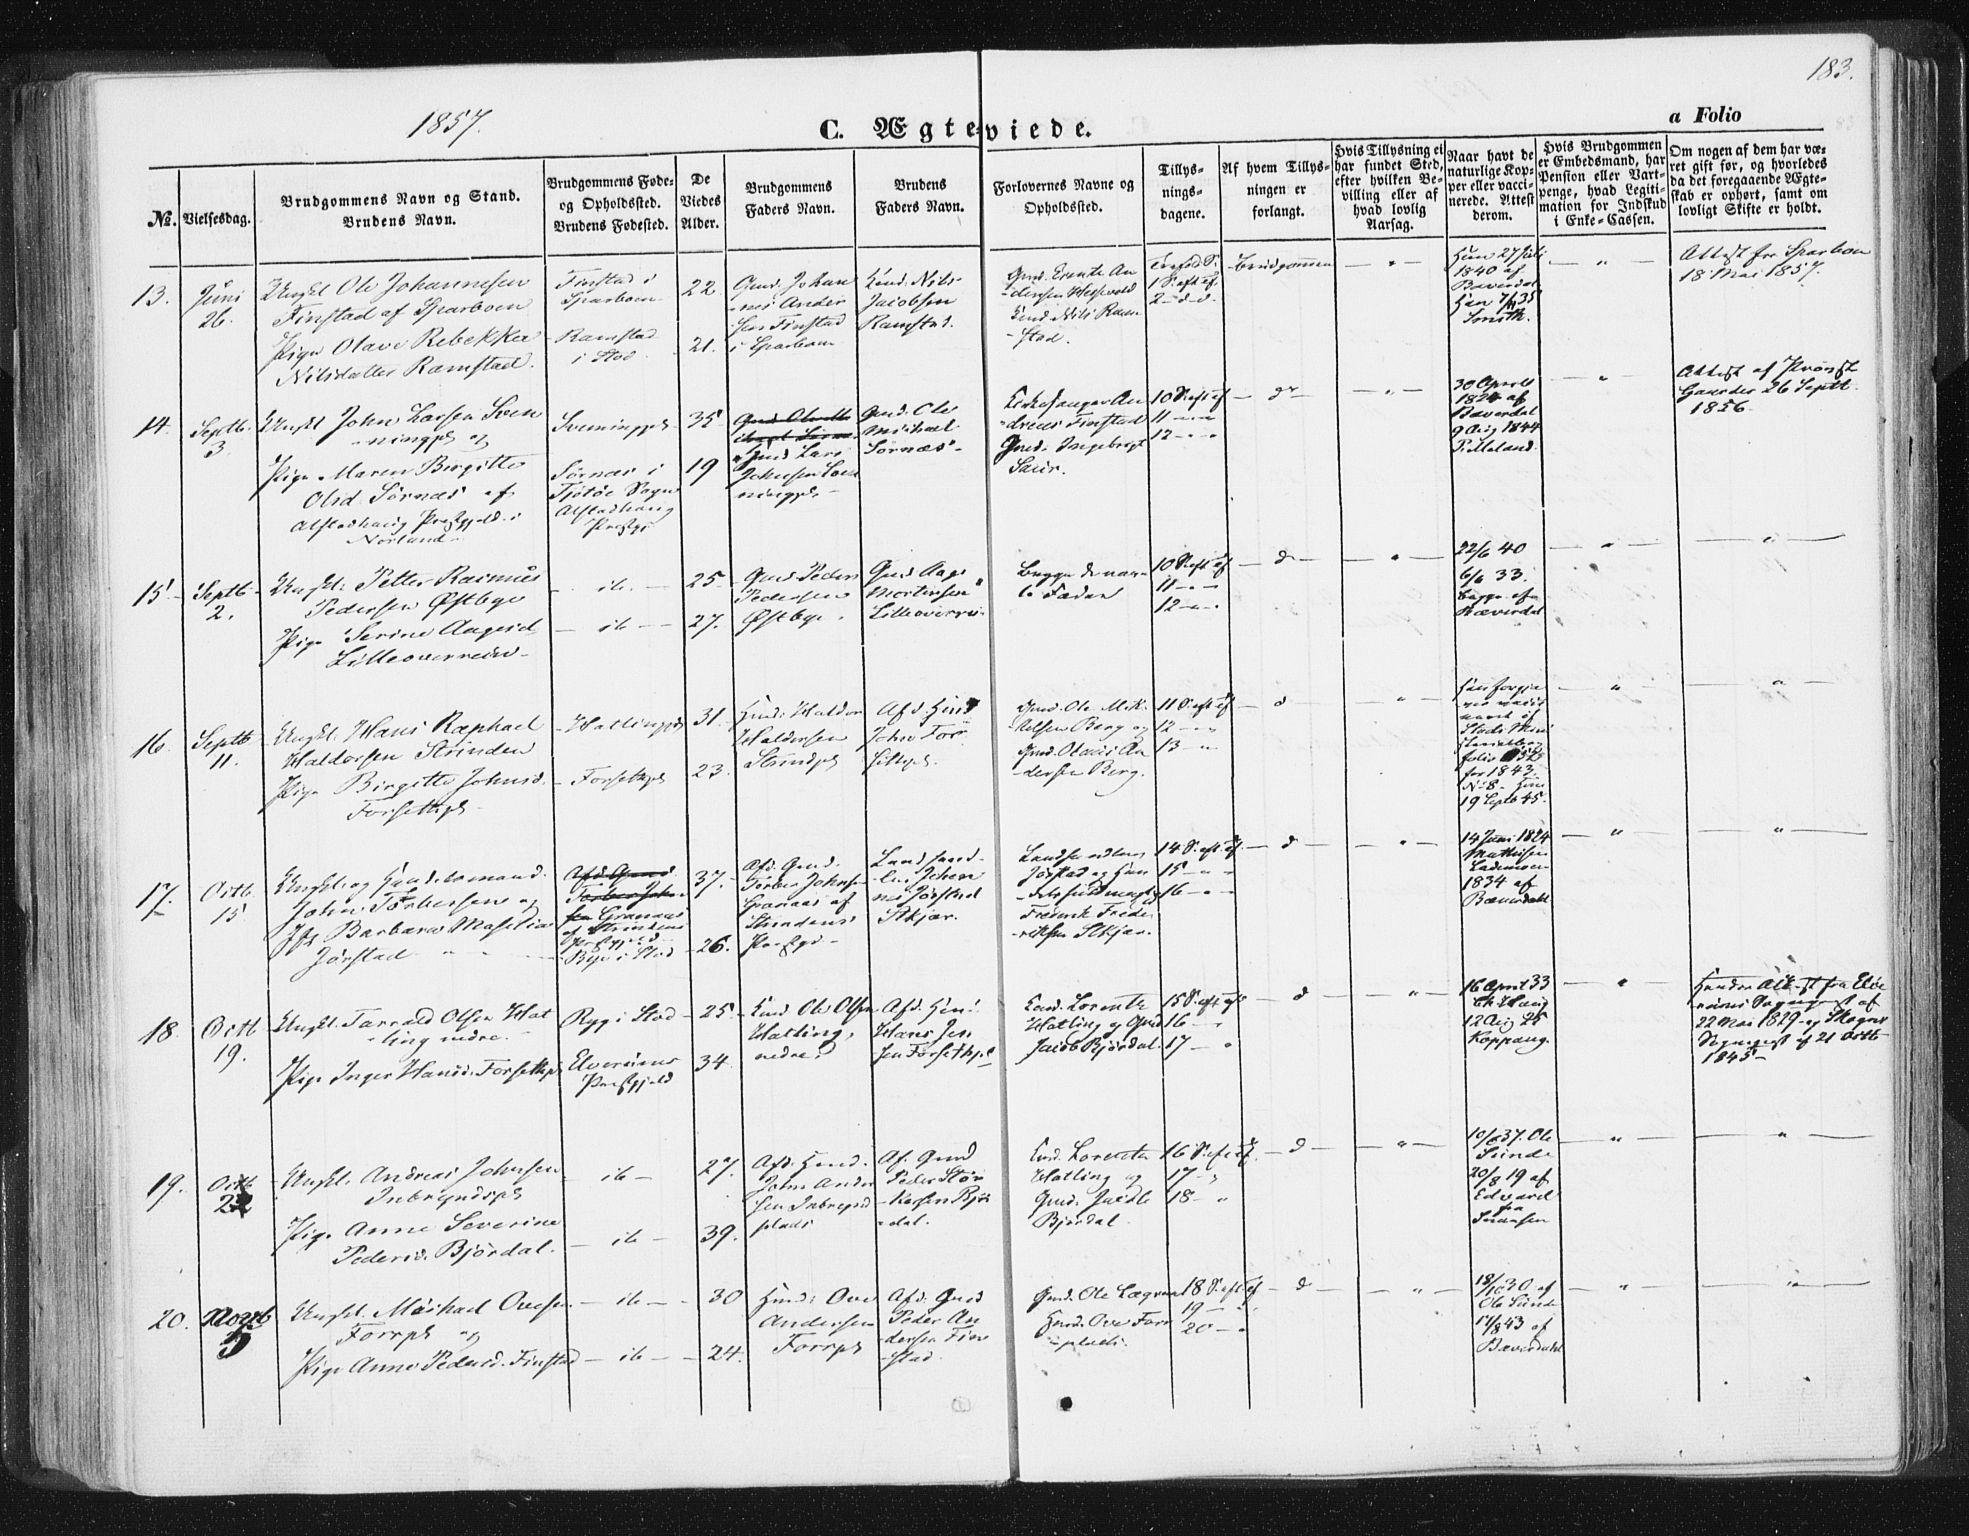 183.
1857.
C. Ægteviede.
a Folio
№.
Vielsesdag.
Brudgommens Navn og Stand.
Brudens Navn.
Brudgommens Føde-
og Opholdssted.
Brudens Fødested.
De
Viedes
Alder.
Brudgommens
Faders Navn.
Brudens
Faders Navn.
Forlovernes Navne og
Opholdssted.
Tillys-
nings-
dagene.
Af hvem Tillys-
ningen er
forlangt.
Hvis Tillysning ei
har fundet Sted,
efter hvilken Be-
villing eller af
hvad lovlig
Aarsag.
Naar havt de
naturlige Kop-
per eller vacci-
nerede. Attest
derom.
Hvis Brudgommen
er Embedsmand, har
Pension eller Vart-
penge, hvad Legiti-
mation for Indskud
i Enke-Cassen.
Om nogen af dem har væ-
ret gift før, og hvorledes
da det foregaaende Ægte-
skab er ophørt, samt om
lovligt Skifte er holdt.
13.
Juni
26.
Ungkl Ole Johannesen
Finstad af Sparboen
Pige Olave Rebekka
Nilsdatter Ramstad.
Finstad i
Sparboen
Ramstad
i Stod.
22
21.
Gmd. Johan
nes Ander
sen Finstad
i Sparboen
Nils
Jacobsen
Ramstad.
Gmd.
Nils Ram
-stad.
Brudgommen
Hun 27 Juli
1840 af
Bæverdal
Smith.
Attest fra Sparboen
18 Mai 1857.
14.
Septb.
3
Ungkl John Larsen Sven
ningpl og
Pige Maren Birgitte
Olsd Sørnæs af
Alstadhaug Præstgjeld i
Norland
Sveningpl
Sørnæs i
Tjøtøe Sogn
Alstadhaug
Præstgj
35
19
Gmd Lars
Johnsen Sven
ningpl
Gmd. Ole
Michael
Sørnæs
Kirkesanger An
dreas Finstad
Gmd. Ingebrigt
10 S. eft. Tf
11 - - -
12 - - -
30 April
1824 af
Bæverdal
9 Aug 1844
Attest af Provst
26 Septb
1856.
15
Septb
2.
Ungkl. Petter Rasmus
Pedersen Østbye
Pige Serine Aagesd
Lilleoverrein
ib
ib
25
27.
Gmd Peder
Pedersen
Østbye.
Gmd Aage
Mortensen
Lilleoverrein
Begge de nævn
te Fædre
10 S. eft Tf
11 - -
12 - -
22/6 40
6/6 33.
begge af
Bæverdal
16.
Septb
11.
Ungkl Hans Raphael
Haldorsen Strinden
Pige Birgitte Johnsd.
Forsethpl
Hatlingpl
Forsethpl
31.
23.
Haldor
Haldorsen
Strindpl
Afd. Hmd
John For
sethpl.
Gmd. Ole Mik
kelsen Berg og
Gmd. Olaus An
dersen Berg.
11 S. eft Tf
12 - -
13 - -
for 1843.
No 8. Hun
19 Septb 45.
17.
Octb.
15
Ungkl. og Gaardsmand.
John Torbersen og
Jfr Barbara Maselia
Jørstad
Afd. Gmd.
Torber John
sen Granaas
af Strindens
Præstgjeld
Bye i Stod
37.
26.
Afd. Gmd.
Torber Johnsen
Granaas af
Strindens
Præstgj
Johan
Jørstad
Stkjær.
Jørstad og Han
delsfuldmægtig
Frederik Frede
riksen Stkjær.
14 S. eft. Tf.
15 - -
16 - -
14 Juni 1824
Mathisen
Lademoen
1834 af
Bæverdahl
18.
Octb
19.
Ungkl. Tarrald Olsen Hat
ling nedre.
Pige Inger Hansd. Forsethpl
Ryg i Stod
Elverums
Præstgjeld
25
34.
Gmd Ole Olsen
Hatling,
nedre.
Afd. Hmd.
Hans Jen
sen Forsethpl
Gmd. Lorents
Hatling og Gmd
Jacob Bjørdal.
15 S. eft Tf
16 -
17 - -
16 April 33
12 Aug 25
Koppang.
Hendes Attest fra Elve
rums Sogneprest af
22 Mai 1829 og Skogns
Sogneprest af 21 Octb
1845
19.
Octb
22
Ungkl. Andreas Johnsen
Inbryndspl
Pige Anne Severine
Pedersd. Bjørdal.
ib
ib
27.
39.
Afd. Hmd.
John Ander
sen Inbrynd
plads
Af. Gmd
Peder Stør
kersen Bjør
dal.
Gmd. Lorents
Hatling og
Gmd. Jacob
Bjørdal
16 S. eft Tf.
17 -
18 - -
10/8 37. Ole
Sunde
20/8 19 af
Edvard
Svansen
20.
Novb
5
Ungkl. Michael Ovesen
Forrpl og
Pige Anne Pedersd. Finstad
ib
ib
30
24.
Hmd. Ove
Andersen
Forrpl
Afd. Gmd
Peder An
dersen Fin
stad.
Gmd. Ole Lægran
Hmd. Ove Forr
plads.
18 S. eft Tf
19 -
20 - -
18/10 30 af
Ole Sunde
17/8 43 af
Bæverdahl